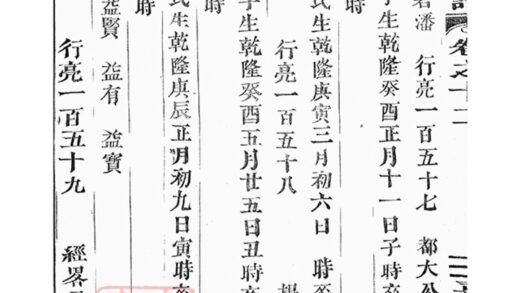 譜 卷之十二
君潘 行亮一百五十七 都大公
子生乾隆癸酉正月十一日子時卒
時
氏生乾隆庚寅三月初六日 時卒
行亮一百五十八
子生乾隆癸酉五月廿五日丑時卒
時
氏生乾隆庚辰正月初九日寅時卒
時
益賢 益有 益寶
行亮一百五十九 經畧